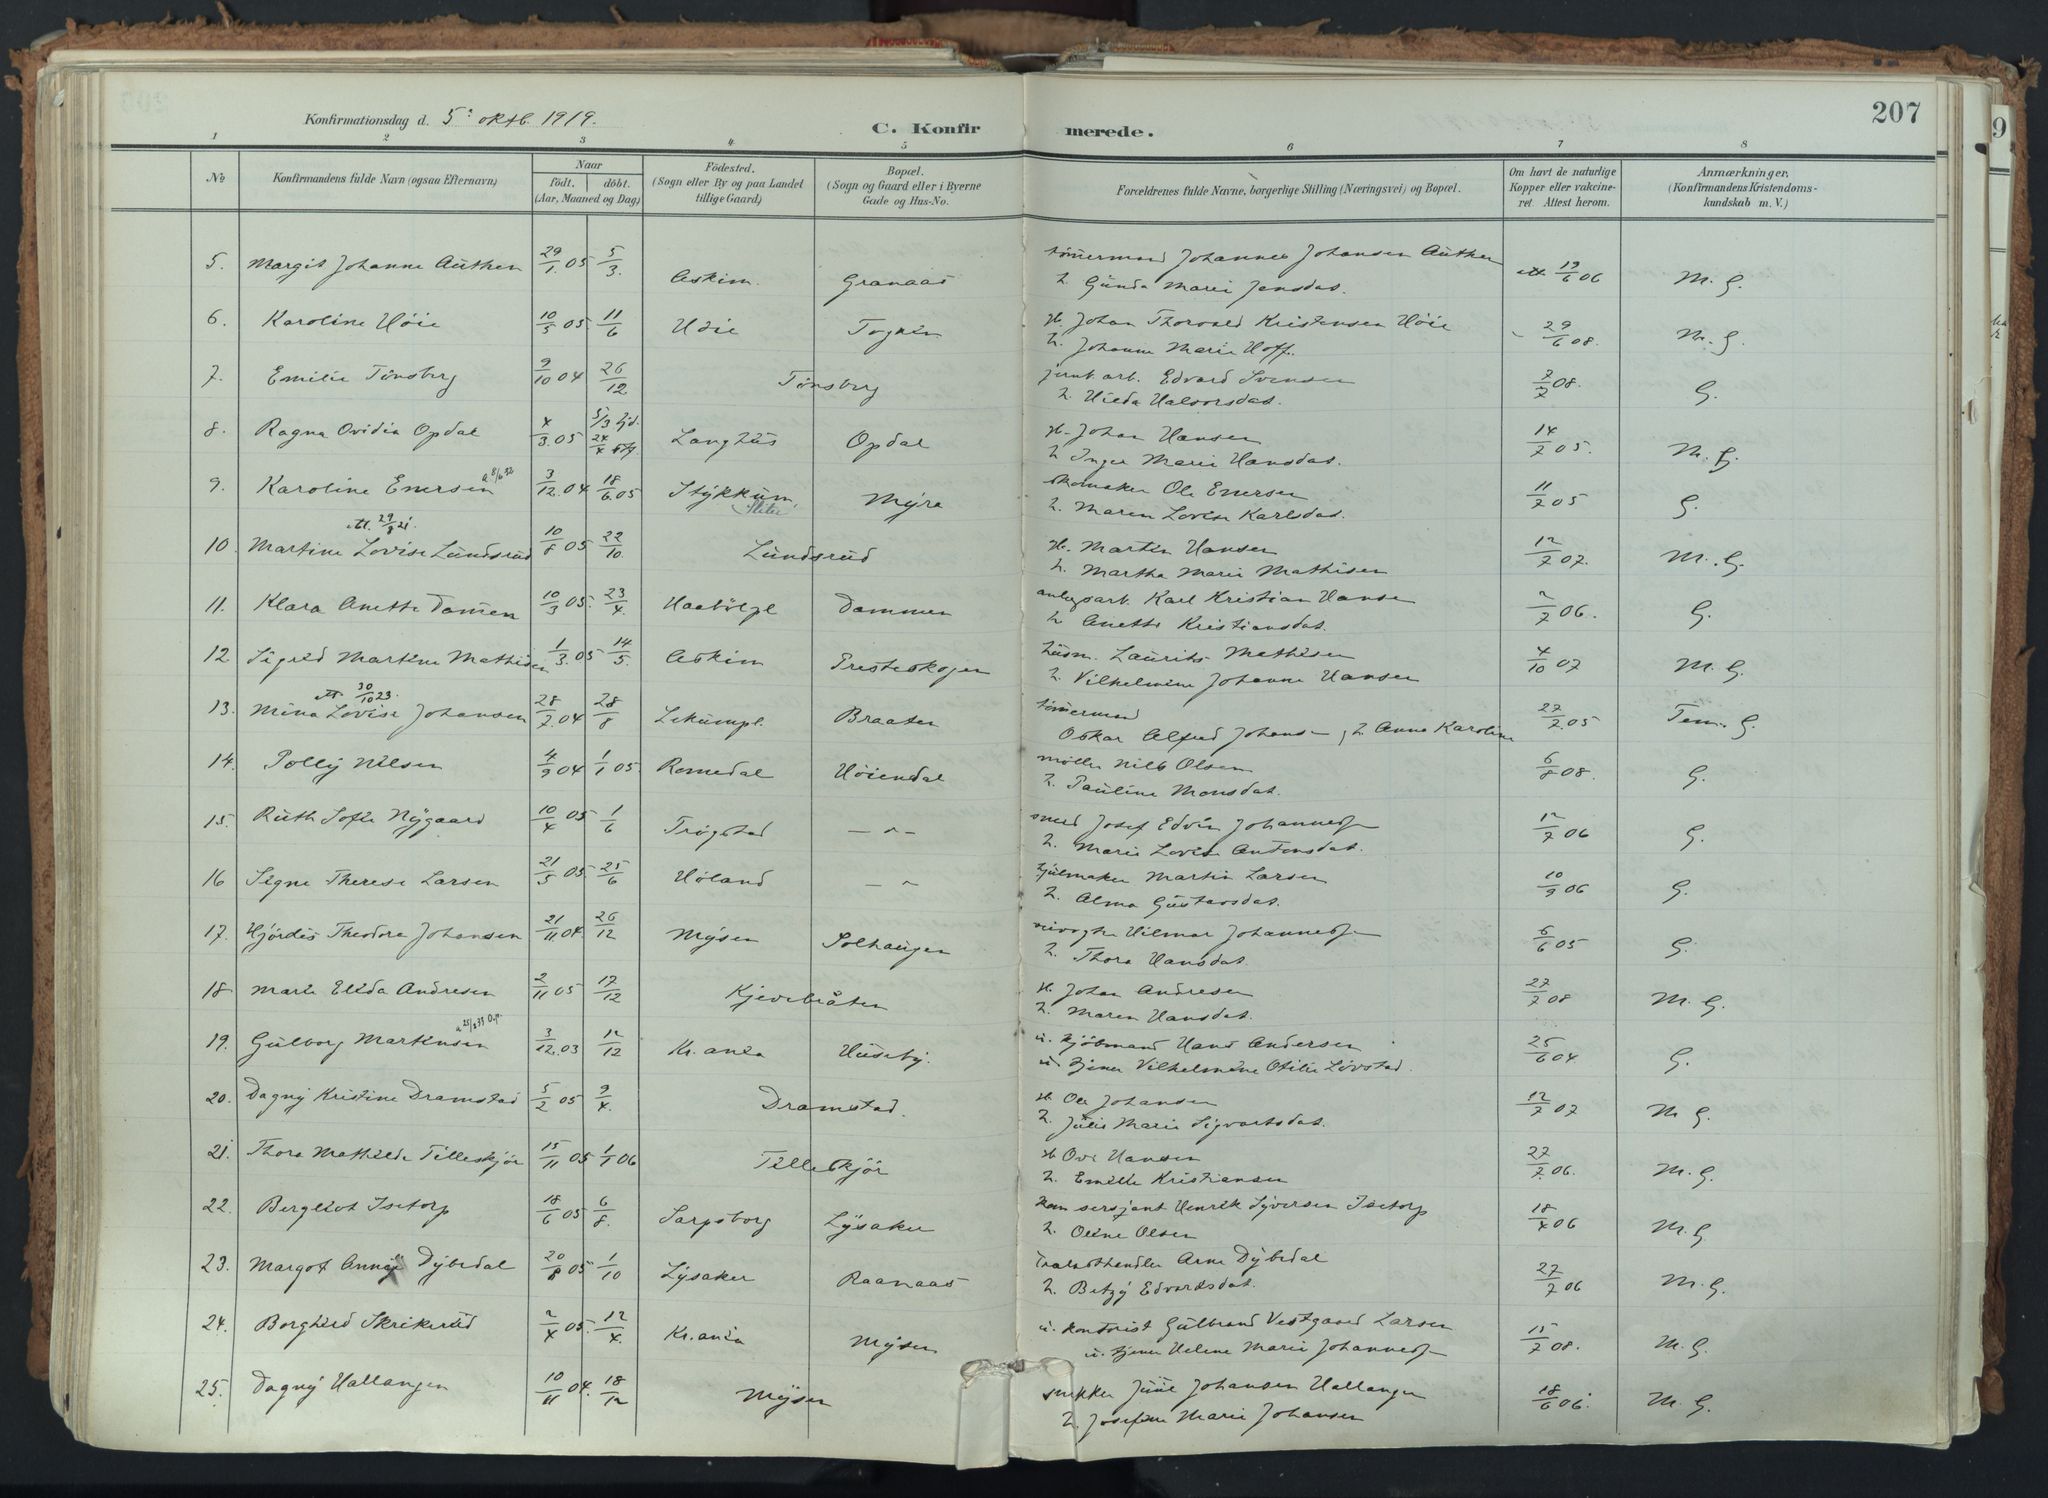 207
Konfirmationsdag d. 5: oktb. 1919.
C. Konfir merede.
1 2 3 4 5 6 7 8
No
Konfirmandens fulde Navn (ogsaa Efternavn)
Naar
födt. döbt.
(Aar, Maaned og Dag)
Födested.
(Sogn eller By og paa Landet
tillige Gaard)
Bopæl.
(Sogn og Gaard eller i Byerne
Gade og Hus-No.
Forældrenes fulde Navne, borgerlige Stilling (Næringsvei) og Bopæl.
Om havt de naturlige
Kopper eller vakcine-
ret. Attest herom.
Anmærkninger.
(Konfirmandens Kristendoms-
kundskab m. V.)
5. Margit Johanne Authen 29/1 05 5/3. Askim. Granaas tømmermand Johannes Johansen Authen
h. Gunda Marie Jensdat. att. 19/6 06 M. G.
6. Karoline Höie 10/5 05 11/6 Höie Johan Thorvald Kristensen Höie
h. Johanne Marie Hoff. 29/6 08. M. G.
7. Emilie Tönsberg 9/10 04 26/12 Tönsberg jernb. arb. Edvard Svensen
h. Hilda Halvorsdat. 7/7 08. G.
8. Ragna Ovidia Opdal 4/3. 05 5/3 hjd. 24/4 Langhus Opdal Johan Hansen
h. Inger Marie Hansdat. 14/7 05. M. G.
9. Karoline Enersen 3/12. 04 18/6. 05 Stykkum Myra skomaker Ole Enersen
h. Maren Lovise Karlsdat. 11/7 05 G.
10. Martine Lovise Lundsrud 10/8 05 22/10 Lundsrud Martin Hansen
h. Martha Marie Mathisen 12/7 07. M. G.
11. Klara Anette Damen 10/3 05. 23/4. Haabölpl. Dammen anlegsarb. Karl Kristian Hansen
h. Anette Kristiansdat. 2/7 06. G.
12 Sigrid Martine Mathisen 1/3. 05 14/5. Askim Presteskogen husm. Laurits Mathisen
h. Vilhelmine Johanne Hansen 4/10 07 M. G.
Att. 30/10 23.
13. Mina Lovise Johansen 28/7 04 28/8 Lekumpl. Braaten tömmermand
Oskar Alfred Johans- , h. Anna Karoline 27/7. 05 Tem. G.
14. Polly Nilsen 4/9 04 1/1 05. Romedal Höiendal møller Nils Olsen
h. Pauline Monsdat. 6/8 08. G.
15. Ruth Sofie Nygaard 10/4 05 1/6 Trögstad — „ — smed Josef Edvin Johannes-
h. Marie Lovise Antonsdat. 12/7 06 G.
16 Signe Therese Larsen 21/5 05. 25/6 Höland — „ hjulmaker Martin Larsen
h. Alma Gustavsdat. 10/9 06 G.
17. Hjördis Theodora Johansen 21/11 04. 26/12 Mysen Solhaugen veivogter Hilmar Johannes-
h. Thora Hansdat. 6/6 05 G.
18 Marie Elida Andresen 2/11 05 17/12 Kjevebråten Johan Andresen
h. Maren Hansdat. 27/7 08 M. G.
19. Gulborg Martinsen 3/12. 03 12/12 Kr.ania Huseby. u. kjöbmand Hans Andersen
u. tjener Vilhelmine Otilie Lövstad. 25/6 04 G.
20. Dagny Kristine Dramstad 5/2 05 9/4. Dramstad. Ole Johansen
h. Julie Marie Sigvartsdat. 12/7 07 M. G.
21. Thora Mathilde Tilleskjör 15/11 05 1/1 06 Tilleskjör Ove Hansen
h. Emilie Kristiansen 27/7. 06. M. G.
22. Bergliot Isetorp 18/6 05 6/8. Sarpsborg Lysaker kom sersjant Henrik Syversen Isetorp
h. Oline Olsen 18/4 06 M. G.
23. Margot Anny Dybedal 20/8 05 1/10 Lysaker Raanaas Arne Dybedal
h. Betzy Edvardsdat. 27/7 06 M. G.
24. Borghild Skrikerud 2/4 05. 12/4. Kr.ania Mysen u. kontorist Gulbrand Vestgaard Larsen
u. tjener Helene Marie Johannes- 15/7 08. M. G.
25. Dagny Hallangen 10/11 04. 18/12 Mysen snekker Juul Johansen Hallangen
h. Josefine Marie Johansen 18/6 06. M. G.